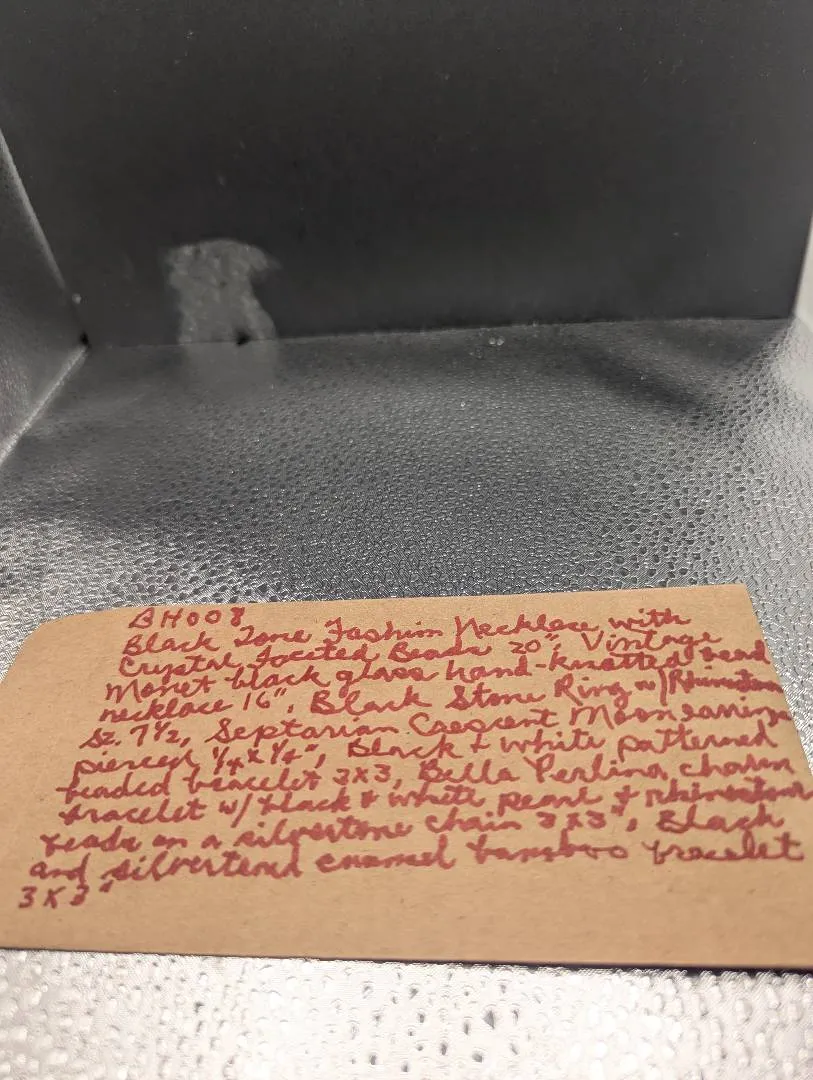 BH008
Black Tone Fashion Necklace with
Crystal Faceted Beads 20", Vintage
Monet black glass hand-knotted bead
necklace 16", Black Stone Ring w/Rhinestone
Sz. 7 1/2, Septarian Crescent Moon earrings
pierced 1/4 x 1/4", Black + white patterned
beaded bracelet 3x3, Bella Perlina charm
bracelet w/ black + white pearl + rhinestone
beads on a silvertone chain 3x3", Black
and silvertoned enamel bamboo bracelet
3x3"